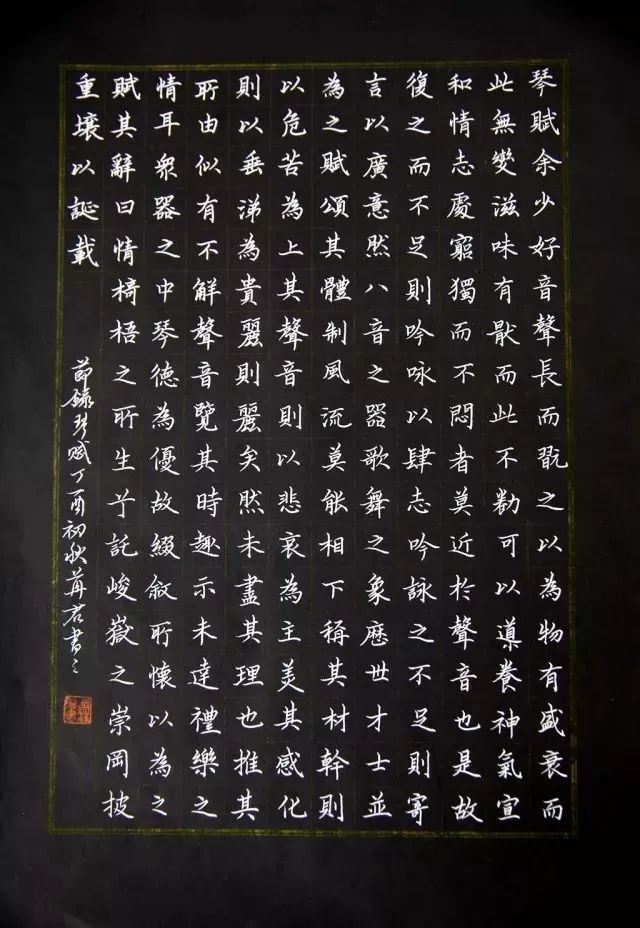 琴賦余少好音聲長而翫之以為物有盛衰而
此無變滋味有厭而此不勌可以導養神氣宣
和情志處窮獨而不悶者莫近於聲音也是故
復之而不足則吟咏以肆志吟詠之不足則寄
言以廣意然八音之器歌舞之象歷世才士並
為之賦頌其體制風流莫能相下稱其材幹則
以危苦為上其聲音則以悲哀為主美其感化
則以垂涕為貴麗則麗矣然未盡其理也推其
所由似有不解聲音覽其時趣示未達禮樂之
情耳眾器之中琴德為優故綴敘所懷以為之
賦其辭曰情椅梧之所生兮託峻嶽之崇岡披
重壤以誕載
節錄琴賦丁酉初秋苒君書之